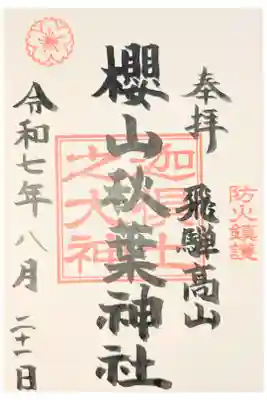 奉拝
飛騨高山
防火鎮護
櫻山秋葉神社
迦具土
之大神
令和七年八月二十一日